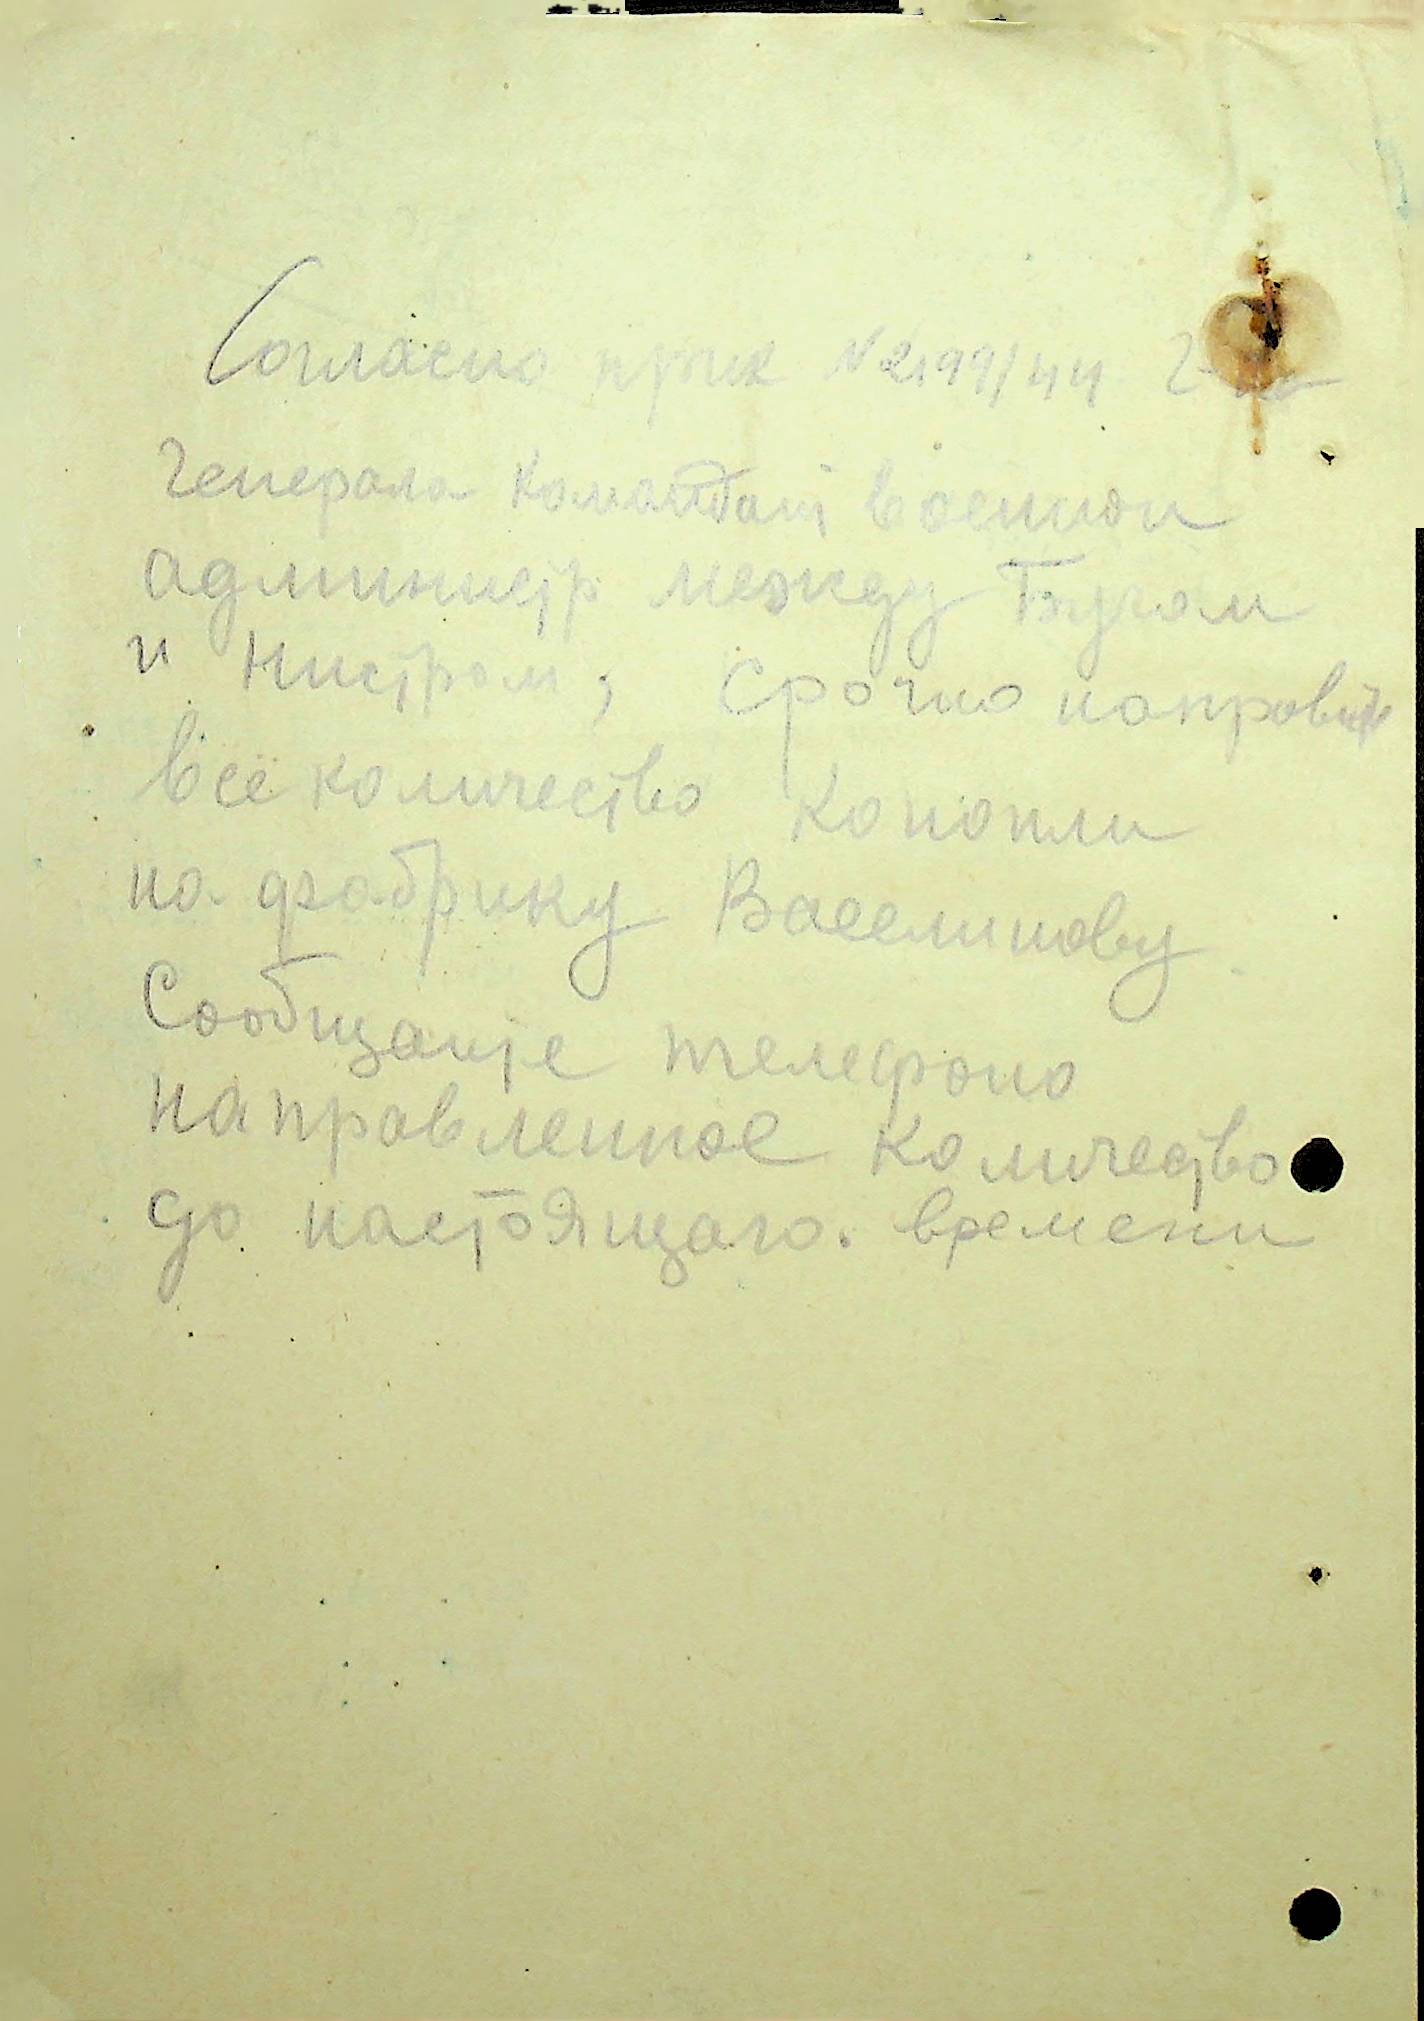 Согласно прик N 2199/44 г-на
Генерала Командащ военной
администр между Бугом
и Нистром, срочно направте
всё количество конопли
на фабрику Васелинову
Сообщайте телефоно
направленное количество
до настоящаго. времени